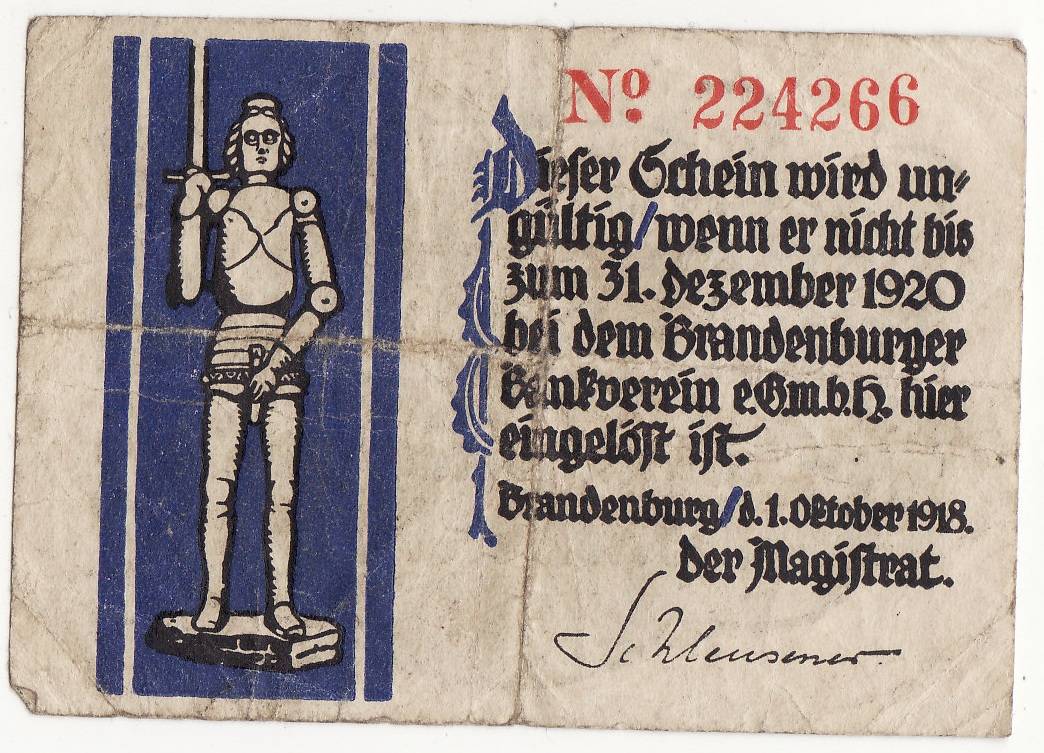 Nº 224266
Dieser Schein wird un=
gültig/wenn er nicht bis
zum 31. Dezember 1920
bei dem Brandenburger
Bankverein e.G.m.b.H. hier
eingelöst ist.
Brandenburg/d. 1. Oktober 1918.
Der Magistrat.
Schleusener